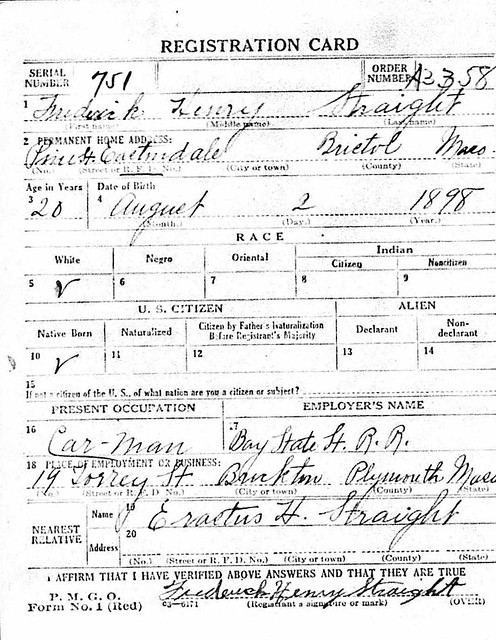 REGISTRATION CARD
SERIAL NUMBER 751 ORDER NUMBER A2358
1 Frederick Henry Straight
(First name) (Middle name) (Last name)
2 PERMANENT HOME ADDRESS:
Eastondale Bristol Mass
(No.) (Street or R. F. D. No.) (City or town) (County) (State)
Age in Years Date of Birth
3 20 4 August 2 1898
(Month.) (Day.) (Year.)
RACE
White Negro Oriental Indian
Citizen Noncitizen
5 6 7 8 9
U. S. CITIZEN ALIEN
Native Born Naturalized Citizen by Father's Naturalization Before Registrant's Majority Declarant Non-declarant
10 11 12 13 14
15
If not a citizen of the U. S., of what nation are you a citizen or subject?
PRESENT OCCUPATION EMPLOYER'S NAME
16 Car-man 17 Bay State St. R. R.
18 PLACE OF EMPLOYMENT OR BUSINESS:
19 Torrey St Brockton Plymouth Mass
(No.) (Street or R. F. D. No.) (City or town) (County) (State)
NEAREST RELATIVE
Name 19 Erastus H. Straight
Address 20
(No.) (Street or R. F. D. No.) (City or town) (County) (State)
I AFFIRM THAT I HAVE VERIFIED ABOVE ANSWERS AND THAT THEY ARE TRUE
P. M. G. O.
Form No. 1 (Red) 03-6171 Frederick Henry Straight
(Registrant's signature or mark) (OVER)